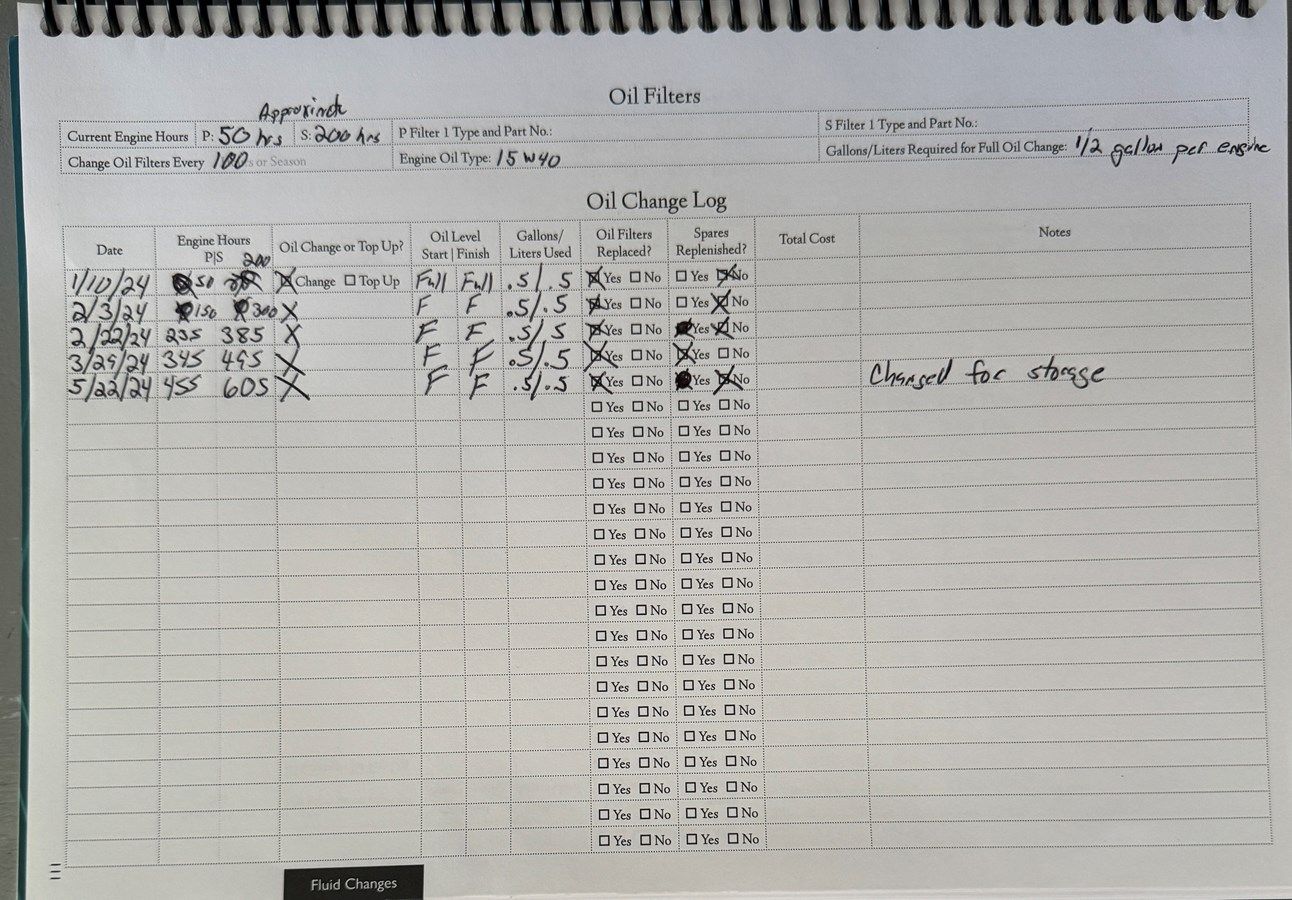 Oil Filters
Approximate
Current Engine Hours P: 50 hrs S: 200 hrs P Filter 1 Type and Part No.: S Filter 1 Type and Part No.:
Change Oil Filters Every 100 s or Season Engine Oil Type: 15W40 Gallons/Liters Required for Full Oil Change: 1/2 gallon per engine
Oil Change Log
Date Engine Hours P|S Oil Change or Top Up? Oil Level Start | Finish Gallons/ Liters Used Oil Filters Replaced? Spares Replenished? Total Cost Notes
200
1/10/24 50 ☒ Change ☐ Top Up Full Full .5/.5 ☒ Yes ☐ No ☐ Yes ☒ No
2/3/24 150 300 X F F .5/.5 ☒ Yes ☐ No ☐ Yes ☒ No
2/22/24 235 385 X F F .5/.5 ☒ Yes ☐ No Yes ☒ No
3/29/24 345 495 X F F .5/.5 ☒ Yes ☐ No ☒ Yes ☐ No
5/22/24 455 605 X F F .5/.5 ☒ Yes ☐ No Yes ☒ No Changed for storage
☐ Yes ☐ No ☐ Yes ☐ No
☐ Yes ☐ No ☐ Yes ☐ No
☐ Yes ☐ No ☐ Yes ☐ No
☐ Yes ☐ No ☐ Yes ☐ No
☐ Yes ☐ No ☐ Yes ☐ No
☐ Yes ☐ No ☐ Yes ☐ No
☐ Yes ☐ No ☐ Yes ☐ No
☐ Yes ☐ No ☐ Yes ☐ No
☐ Yes ☐ No ☐ Yes ☐ No
☐ Yes ☐ No ☐ Yes ☐ No
☐ Yes ☐ No ☐ Yes ☐ No
☐ Yes ☐ No ☐ Yes ☐ No
☐ Yes ☐ No ☐ Yes ☐ No
☐ Yes ☐ No ☐ Yes ☐ No
☐ Yes ☐ No ☐ Yes ☐ No
☐ Yes ☐ No ☐ Yes ☐ No
☐ Yes ☐ No ☐ Yes ☐ No
☐ Yes ☐ No ☐ Yes ☐ No
Fluid Changes